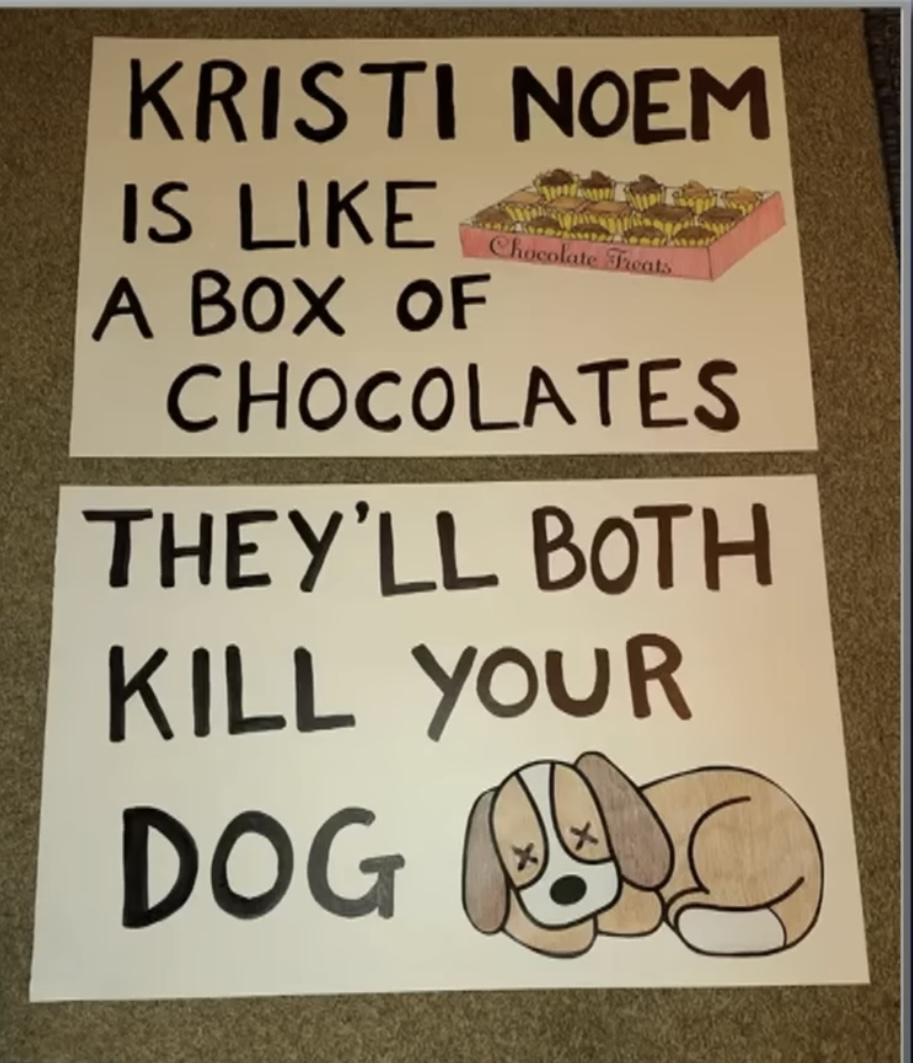 KRISTI NOEM
IS LIKE
Chocolate Treats
A BOX OF
CHOCOLATES
THEY'LL BOTH
KILL YOUR
DOG